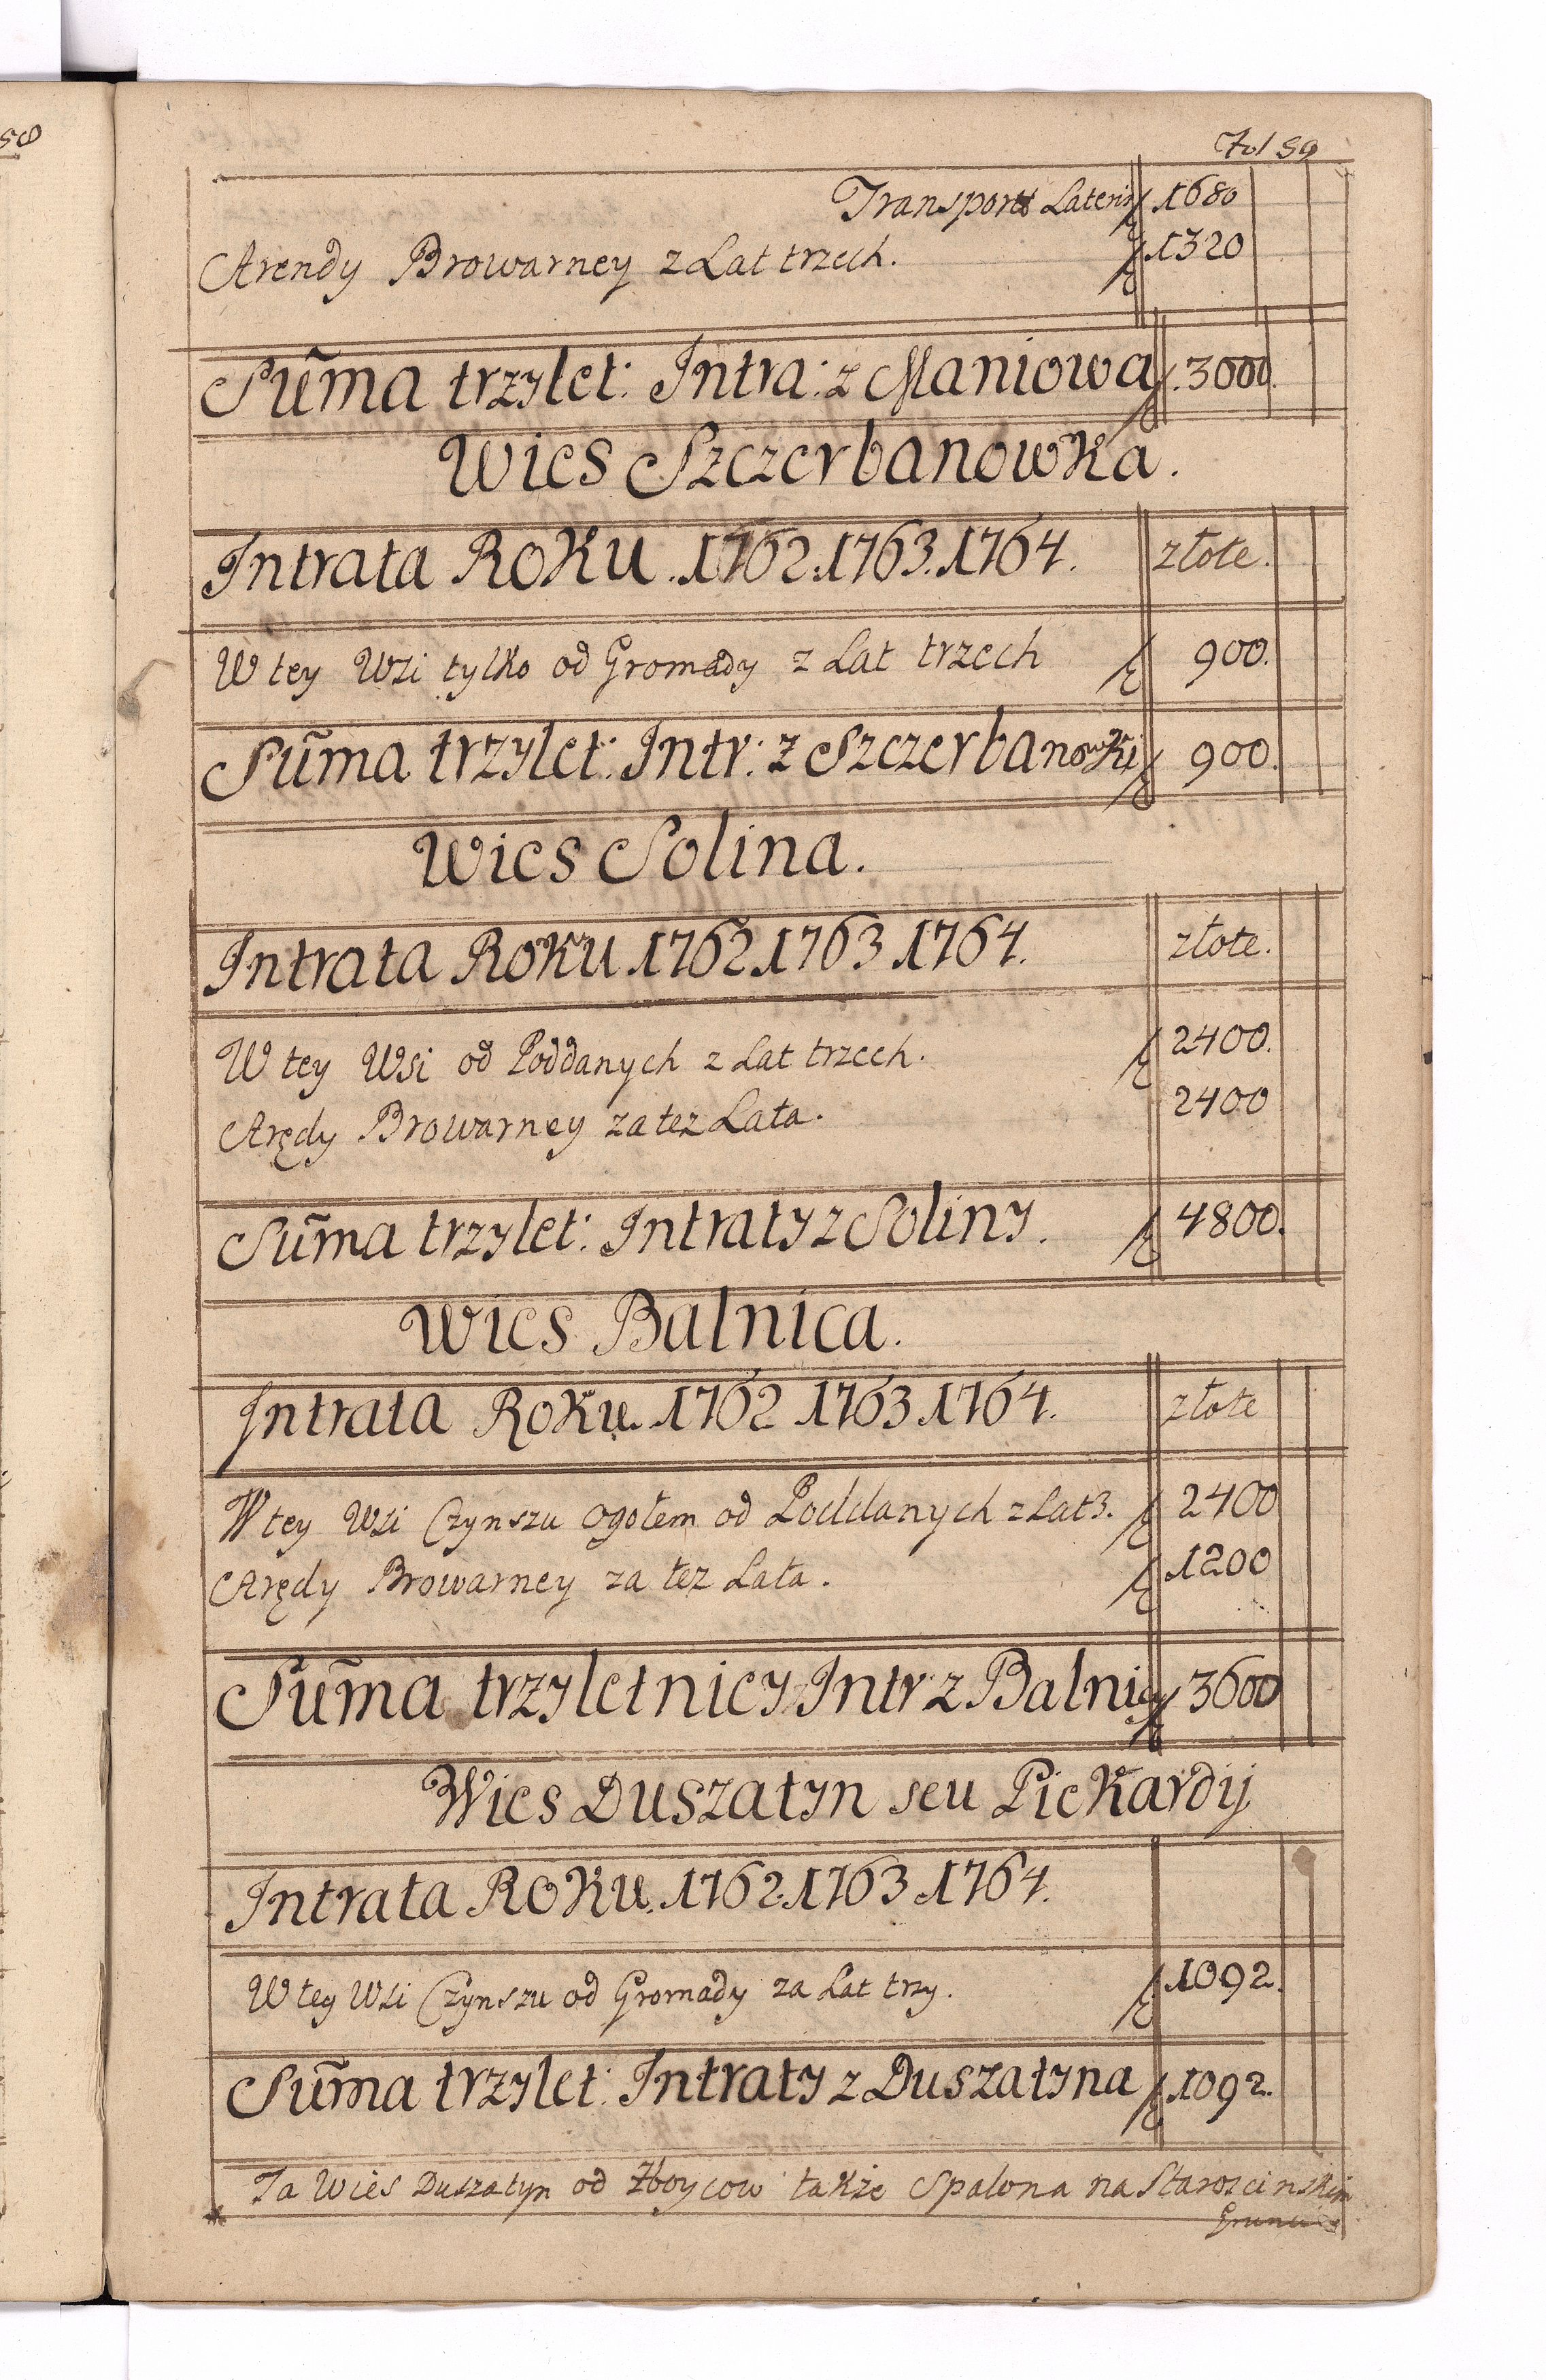 Fol 59
Transport Lateris 1680
Arendy Browarney z Lat trzech. 1320
Sum̃a trzylet: Intra: z Maniowa 3000.
Wies Szczerbanowka.
Intrata Roku. 1762. 1763. 1764. złote.
W tey Wsi tylko od Gromady z Lat trzech 900.
Sum̃a trzylet: Intr: z Szczerbanowki 900.
Wies Solina.
Intrata Roku 1762 1763 1764. złote.
W tey Wsi od Poddanych z Lat trzech. 2400.
Arędy Browarney za tez Lata. 2400
Sum̃a trzylet: Intraty z Soliny. 4800.
Wies Balnica.
Intrata Roku. 1762 1763 1764. złote
W tey Wsi Czynszu ogołem od Poddanych z Lat 3. 2400
Arędy Browarney za tez Lata. 1200
Sum̃a trzyletnicy Intr z Balnicy 3600
Wies Duszatyn seu Piekardij
Intrata Roku. 1762. 1763 1764.
W tey Wsi Czynszu od Gromady za Lat trzy. 1092.
Sum̃a trzylet: Intraty z Duszatyna 1092.
Ta Wies Duszatyn od Zboycow także Spalona na Staroscinskim